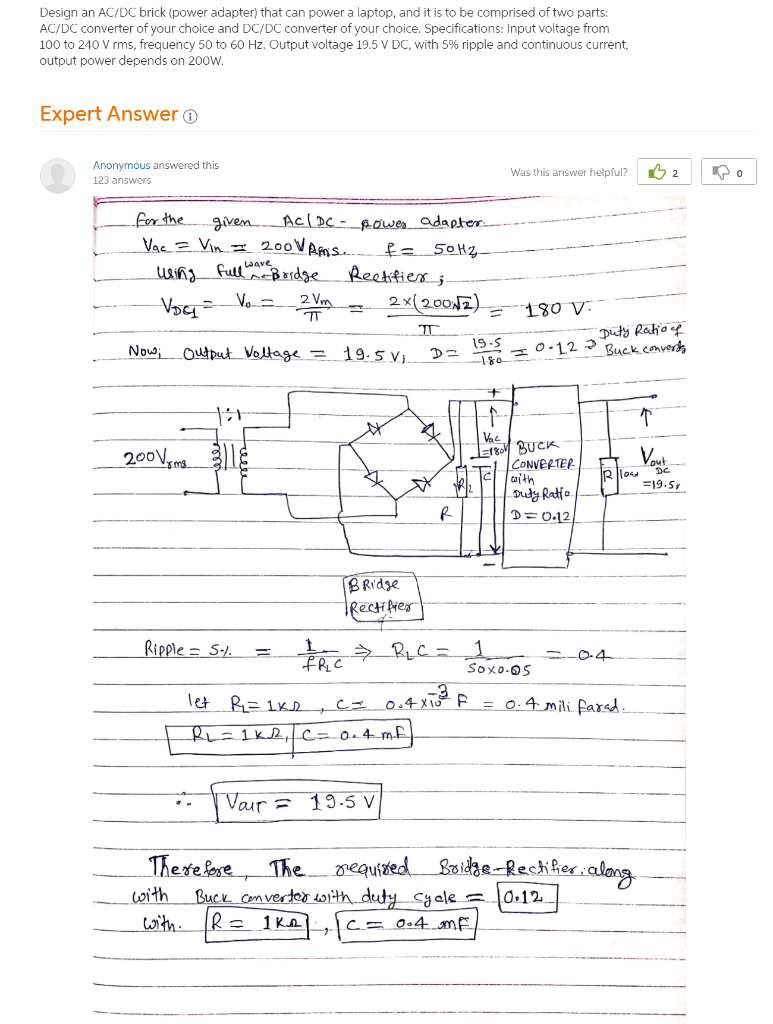 Design an AC/DC brick (power adapter) that can power a laptop, and it is to be comprised of two parts:
AC/DC converter of your choice and DC/DC converter of your choice. Specifications: Input voltage from
100 to 240 V rms, frequency 50 to 60 Hz. Output voltage 19.5 V DC, with 5% ripple and continuous current,
output power depends on 200W.
Expert Answer
Anonymous answered this
123 answers
Was this answer helpful?
2
0
for the given AC/DC - power adapter.
Vac = Vin = 200V Rms. f = 50Hz
using full wave Bridge Rectifier ;
VDC1 = Vo = 2Vm/π = 2×(200√2)/π = 180 V.
Now; Output Voltage = 19.5 V; D = 19.5/180 = 0.12 → Duty Ratio of Buck converter
1:1
200Vrms
+
Vac =180V
C
RL
R
-
BUCK
CONVERTER
with
Duty Ratio
D = 0.12
R load
Vout DC =19.5V
BRidge
Rectifier
Ripple = 5% = 1/fRLC ⇒ RLC = 1/50×0.05 = 0.4
let RL = 1KΩ , C = 0.4×10⁻³ F = 0.4 mili farad.
RL = 1KΩ, C = 0.4 mF
∴ Vout = 19.5 V
Therefore, The required Bridge-Rectifier along
with Buck converter with duty cycle = 0.12
with. R = 1KΩ , C = 0.4 mF